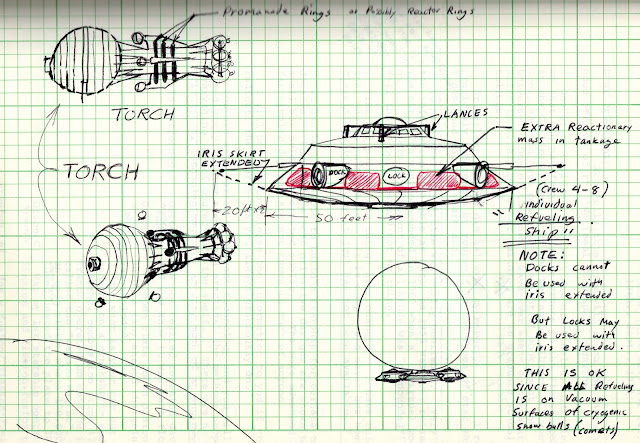 Promanade Rings or Possibly Reactor Rings
TORCH
TORCH
LANCES
EXTRA Reactionary
mass in tankage
IRIS SKIRT
EXTENDED
DOCK
LOCK
20ft
50 feet
(crew 4-8)
individual
Refueling
Ship"
NOTE:
Docks cannot
Be used with
iris extended
But Locks May
Be used with
iris extended.
THIS IS OK
SINCE ALL Refueling
IS on Vacuum
Surfaces of cryogenic
Snow balls (comets)